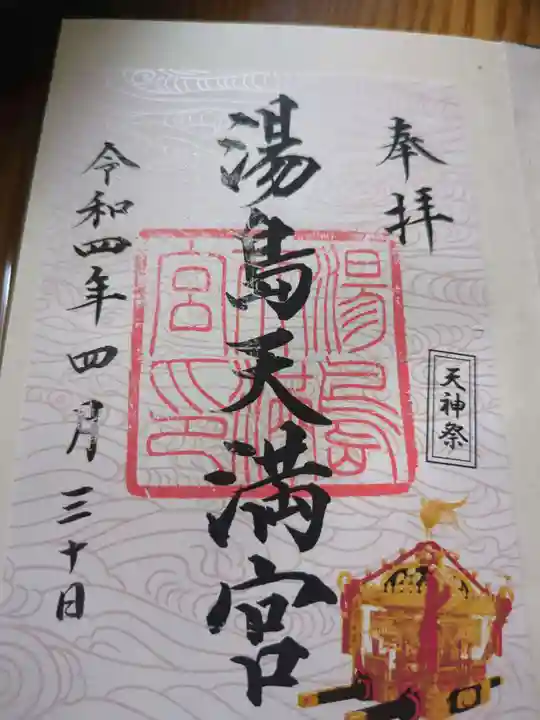 奉拝
天神祭
湯島天満宮
湯島天満宮印
令和四年四月三十日